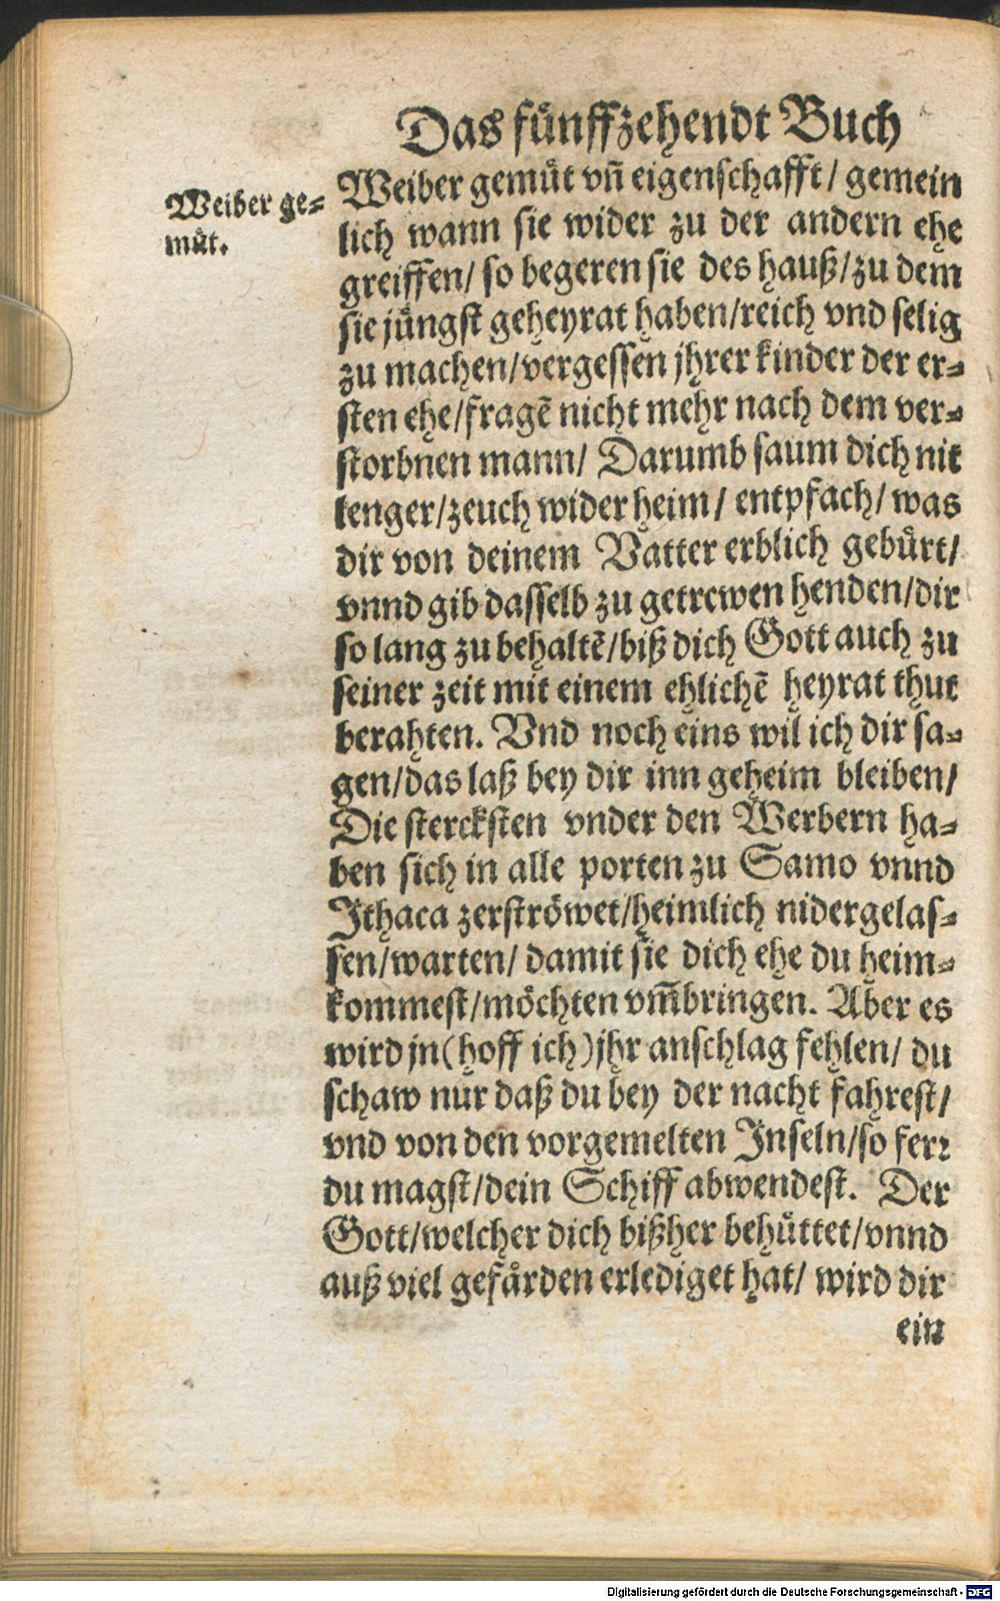 Das fuͤnffzehendt Buch
Weiber ge⸗
muͤt.
Weiber gemuͤt vñ eigenschafft/ gemein
lich wann sie wider zu der andern ehe
greiffen/ so begeren sie des hauß/zu dem
sie juͤngst geheyrat haben/reich vnd selig
zu machen/vergessen jhrer kinder der er⸗
sten ehe/fragẽ nicht mehr nach dem ver⸗
storbnen mann/ Darumb saum dich nit
lenger/zeuch wider heim/ entpfach/ was
dir von deinem Vatter erblich gebuͤrt/
vnnd gib dasselb zu getrewen henden/dir
so lang zu behaltẽ/biß dich Gott auch zu
seiner zeit mit einem ehlichẽ heyrat thut
berahten. Vnd noch eins wil ich dir sa⸗
gen/das laß bey dir inn geheim bleiben/
Die stercksten vnder den Werbern ha⸗
ben sich in alle porten zu Samo vnnd
Ithaca zerströwet/heimlich nidergelas⸗
sen/warten/ damit sie dich ehe du heim⸗
kommest/möchten vm̃bringen. Aber es
wird jn(hoff ich)jhr anschlag fehlen/ du
schaw nur daß du bey der nacht fahrest/
vnd von den vorgemelten Inseln/so ferꝛ
du magst/dein Schiff abwendest. Der
Gott/welcher dich bißher behuͤttet/vnnd
auß viel gefaͤrden erlediget hat/ wird dir
ein
Digitalisierung gefördert durch die Deutsche Forschungsgemeinschaft - DFG